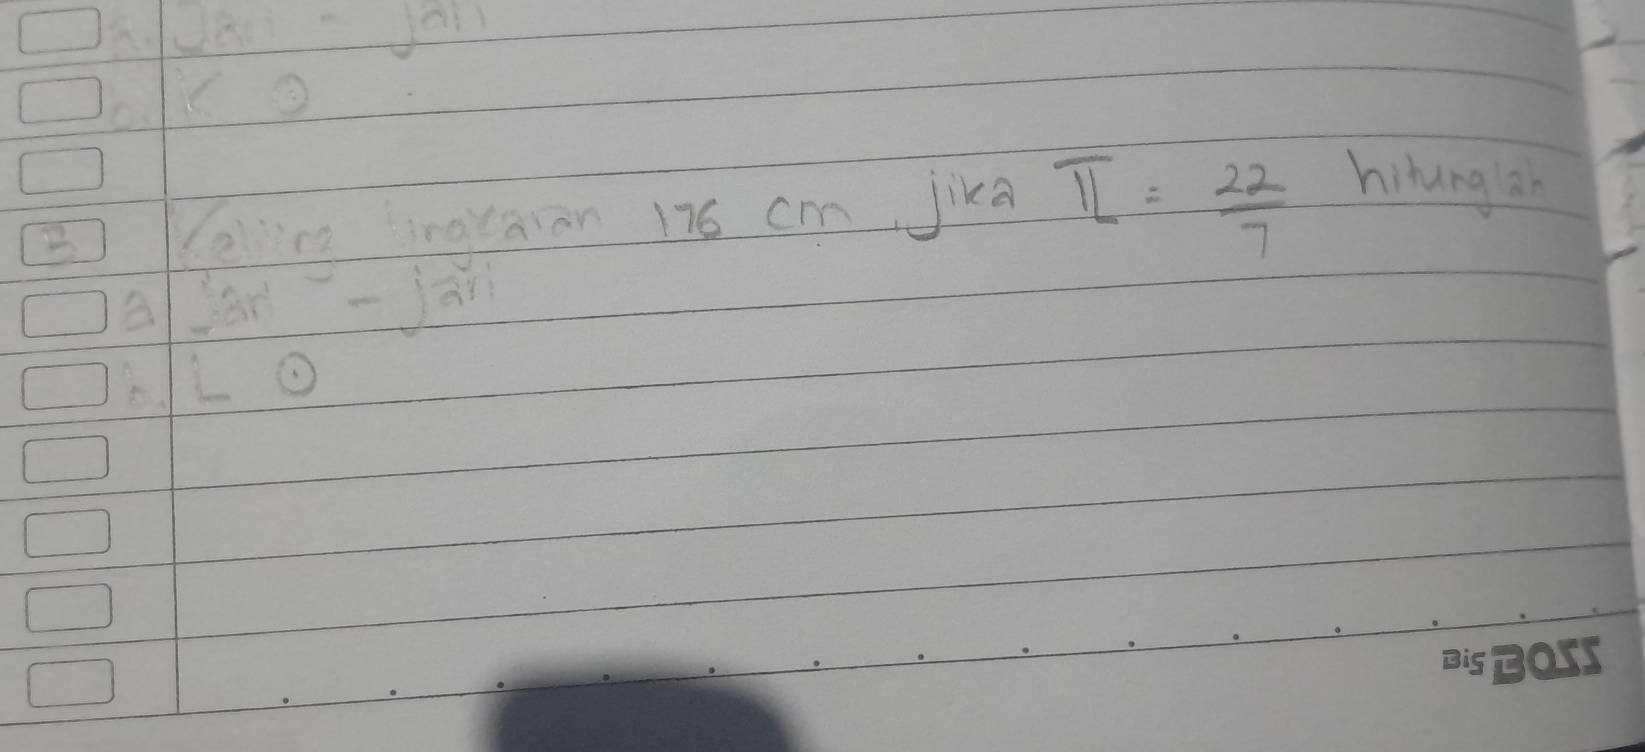 a. Jari - jari
b. K ⊙
5 Keliling lingkaran 176 cm, jika π = 22/7 hitunglah
a. Jari - jari
b. L ⊙
Big BOSS